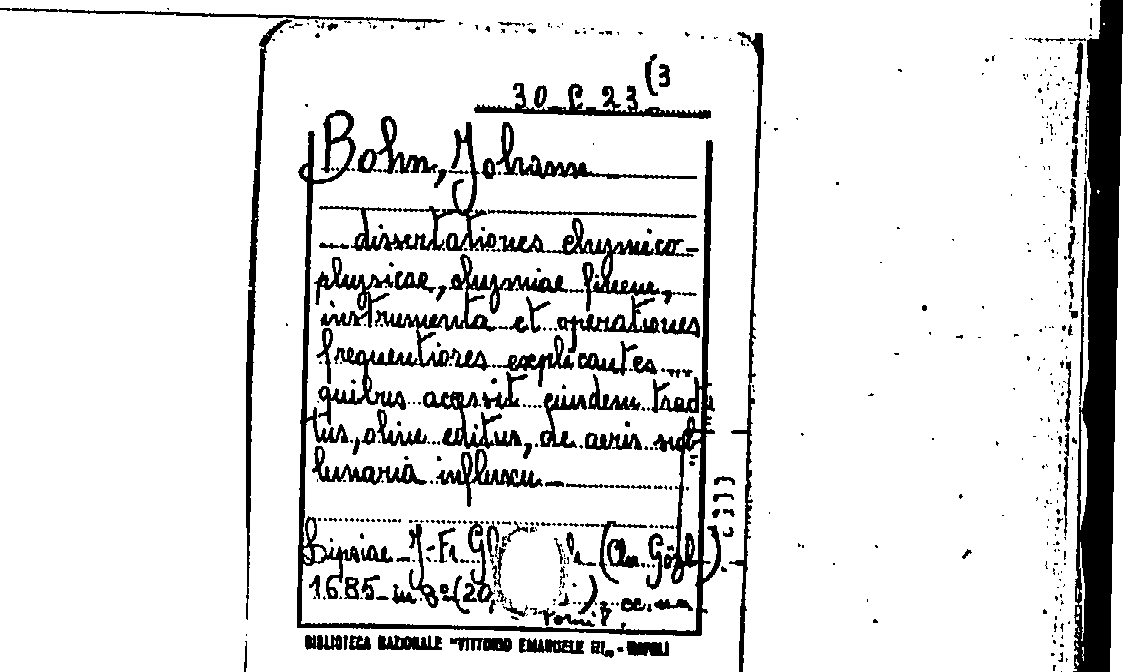 30 C 23 (3
Bohn, Johann
dissertationes chymico-
physicae, chymiae finem,
instrumenta et operationes
frequentiores explicantes ...
quibus acessit eiusdem tracta
tus, olim editus, de aeris sub
lunaria influxu
Lipsiae J. Fr. Gl (Chr. Gözl)
1685 in 8º (20, )
BIBLIOTECA NAZIONALE "VITTORIO EMANUELE III" - NAPOLI